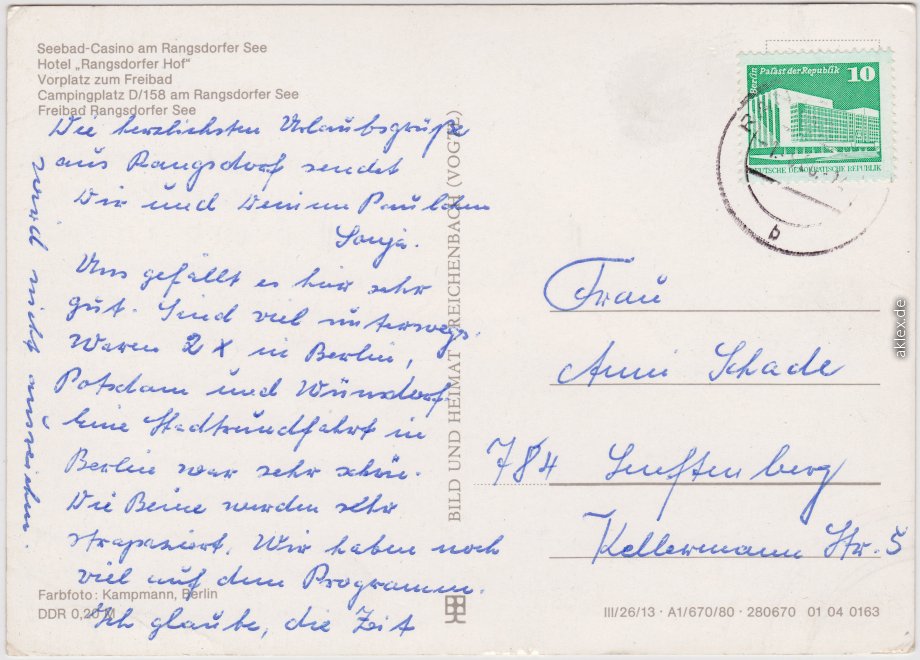 Seebad-Casino am Rangsdorfer See
Hotel „Rangsdorfer Hof“
Vorplatz zum Freibad
Campingplatz D/158 am Rangsdorfer See
Freibad Rangsdorfer See
Die herzlichsten Urlaubsgrüße
aus Rangsdorf sendet
Dir und Deinem Paulchen
Sonja.
Uns gefällt es hier sehr
gut. Sind viel unterwegs.
Waren 2 x in Berlin,
Potsdam und Wünsdorf.
Eine Stadtrundfahrt in
Berlin war sehr schön.
Die Beine wurden sehr
strapaziert. Wir haben noch
viel auf dem Programm.
Ich glaube, die Zeit
nicht ausreichen.
Farbfoto: Kampmann, Berlin
DDR 0,20 M
BILD UND HEIMAT REICHENBACH (VOGTL)
Berlin Palast der Republik 10
DEUTSCHE DEMOKRATISCHE REPUBLIK
b
Frau
Anni Schade
784 Senftenberg
Kellermann Str. 5
III/26/13 · A1/670/80 · 280670 01 04 0163
aklex.de